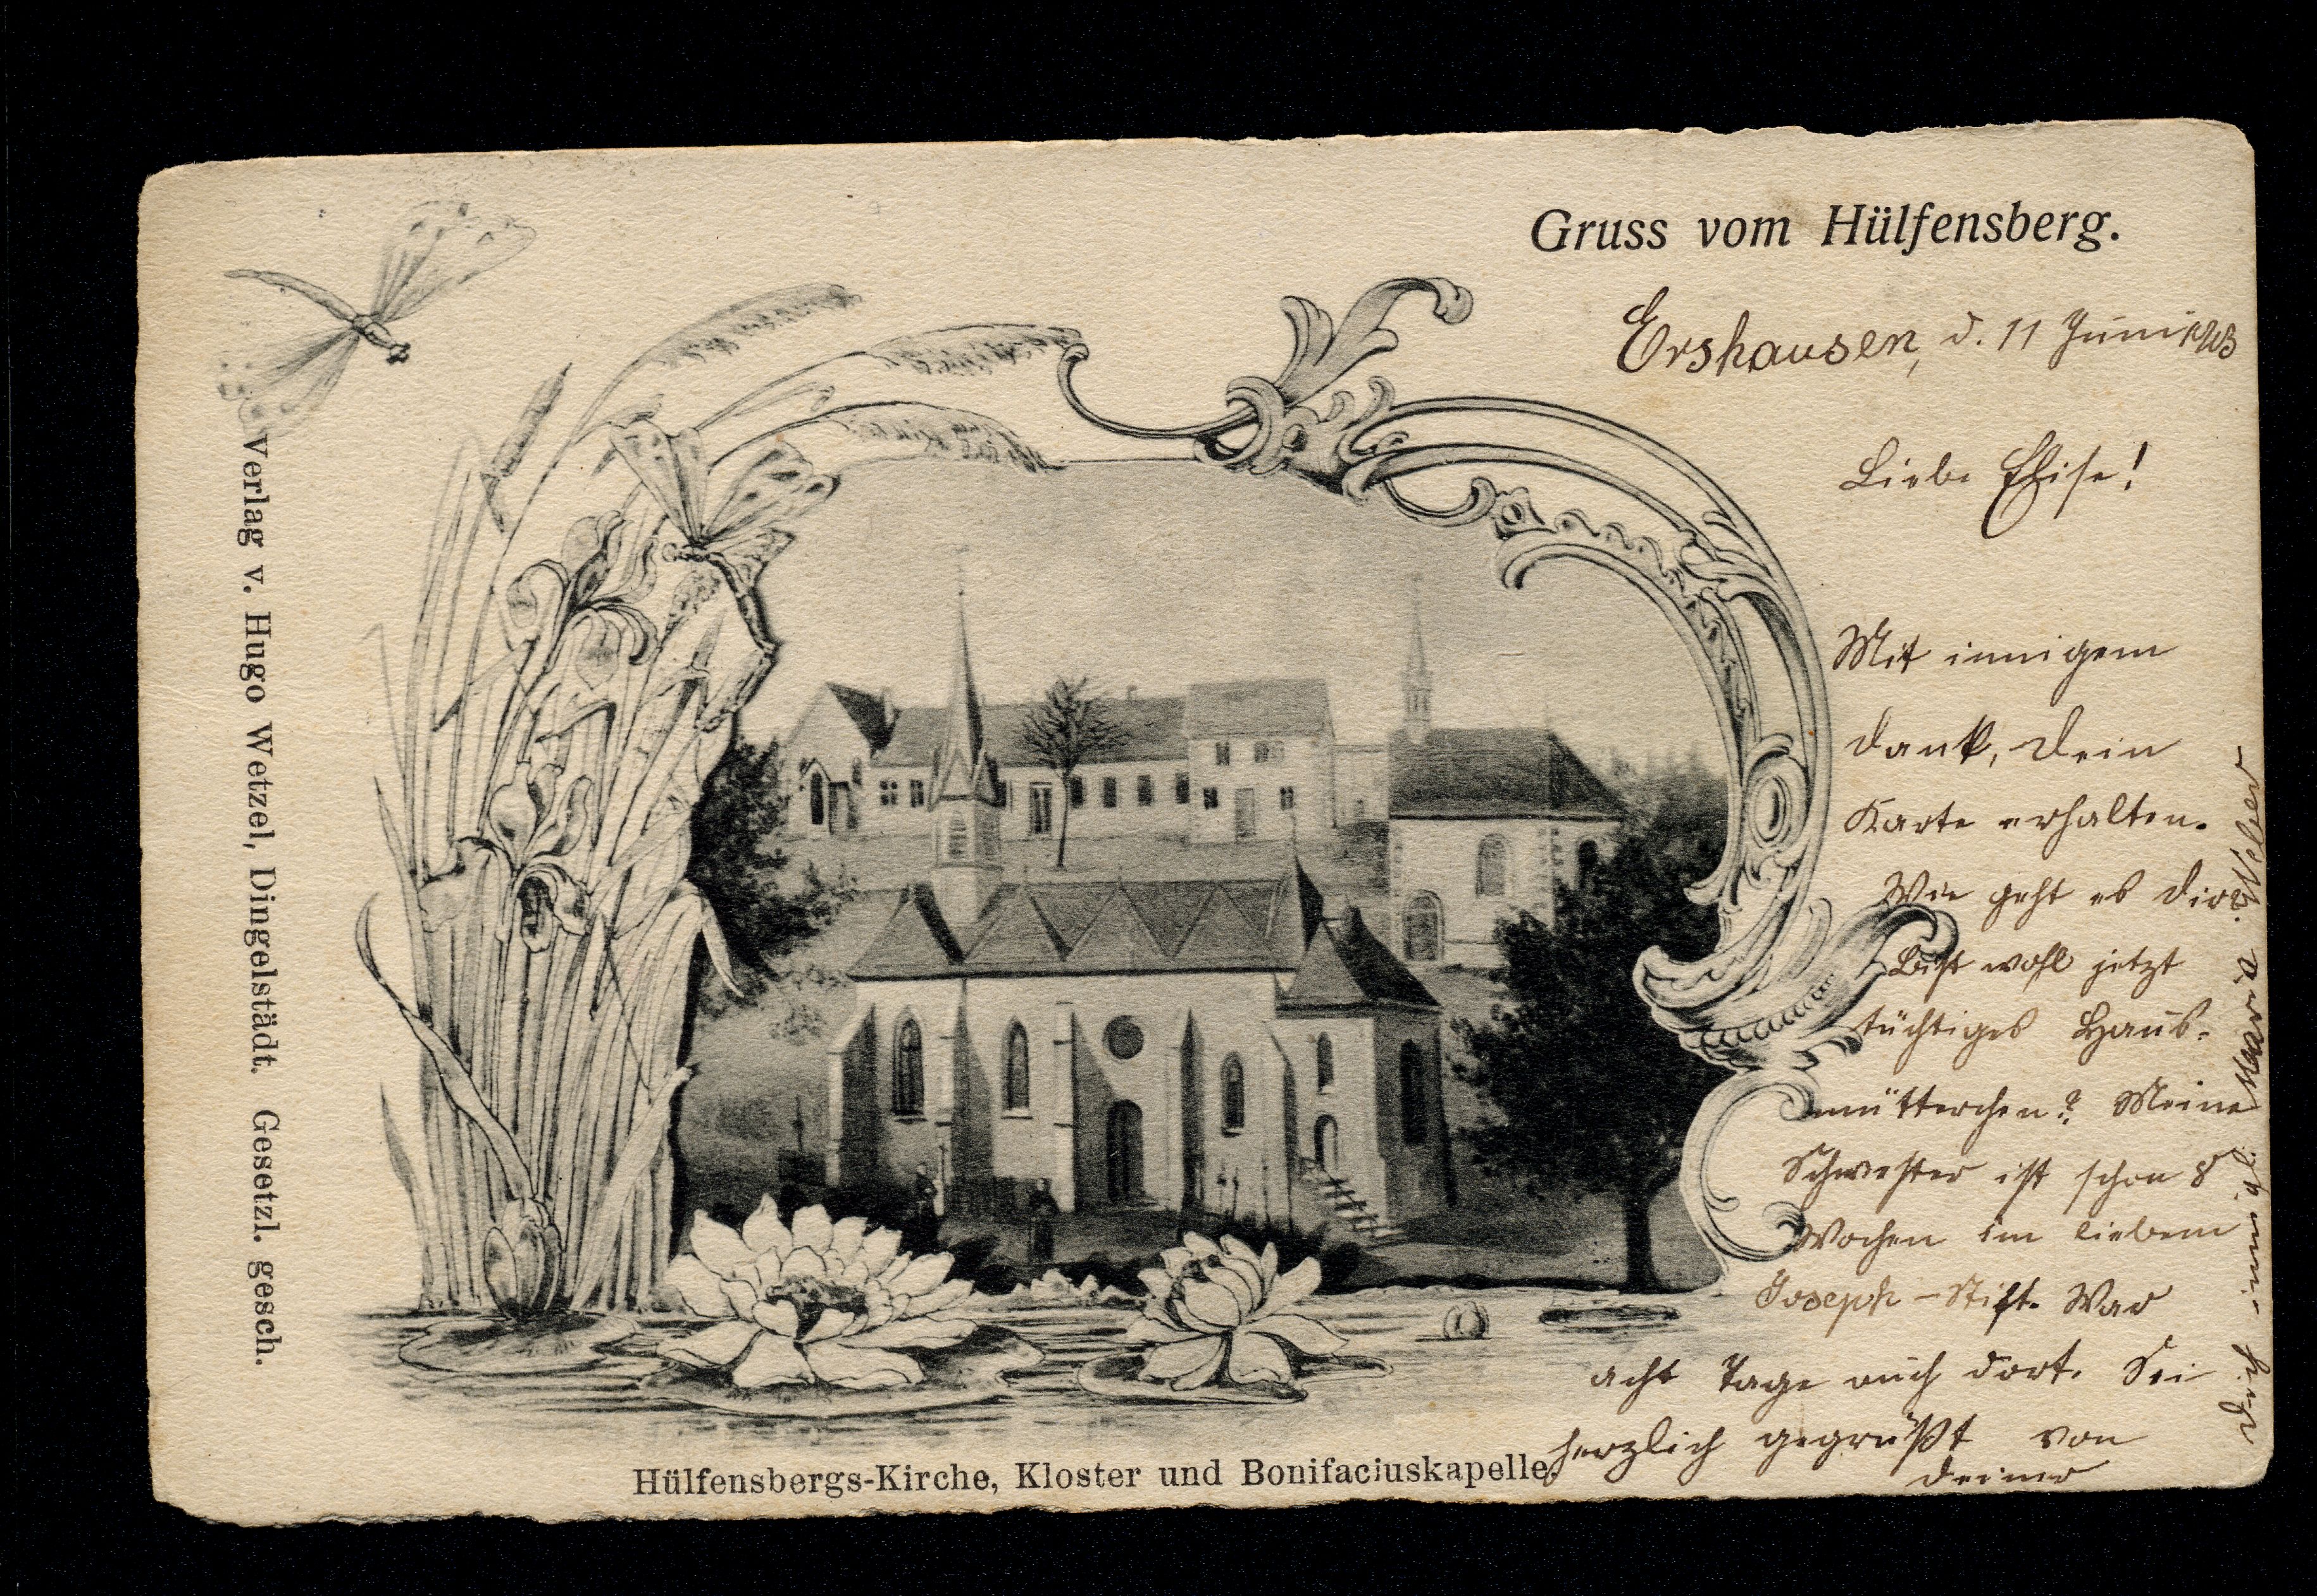 Gruss vom Hülfensberg.
Ershausen, d. 11 Juni 1903
Liebe Elise!
Mit innigem
Dank, Dein
Karte erhalten.
Wie geht es Dir?
Bist wohl jetzt
tüchtiges Haus-
mütterchen? Meine
Schwester ist schon 8
Wochen im liebem
Joseph-Stift. War
acht Tage auch dort. Sei
herzlich gegrüßt von
Deiner
Dich innigl.
Maria Weber
Hülfensbergs-Kirche, Kloster und Bonifaciuskapelle.
Verlag v. Hugo Wetzel, Dingelstädt. Gesetzl. gesch.